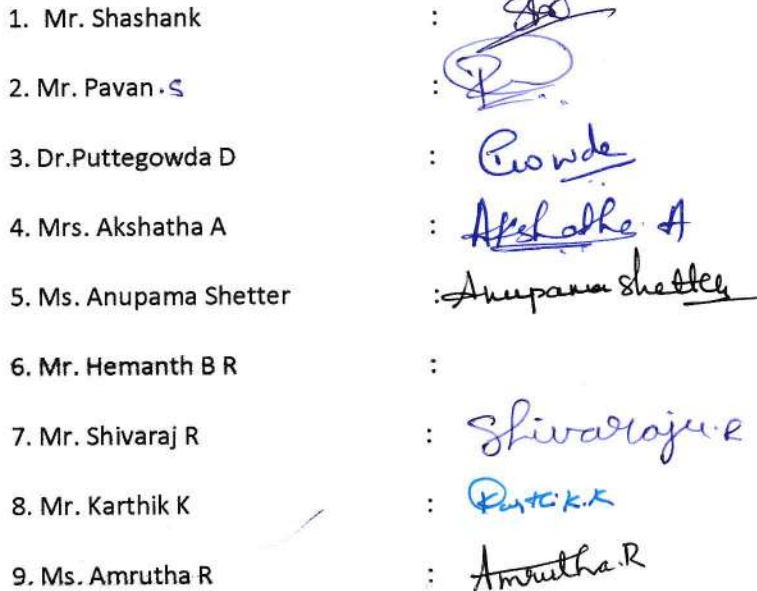 1. Mr. Shashank :
2. Mr. Pavan .S :
3. Dr.Puttegowda D : Gowda
4. Mrs. Akshatha A : Akshatha A
5. Ms. Anupama Shetter : Anupama Shetter
6. Mr. Hemanth B R :
7. Mr. Shivaraj R : Shivaraju.R
8. Mr. Karthik K : Karthik.K
9. Ms. Amrutha R : Amrutha.R